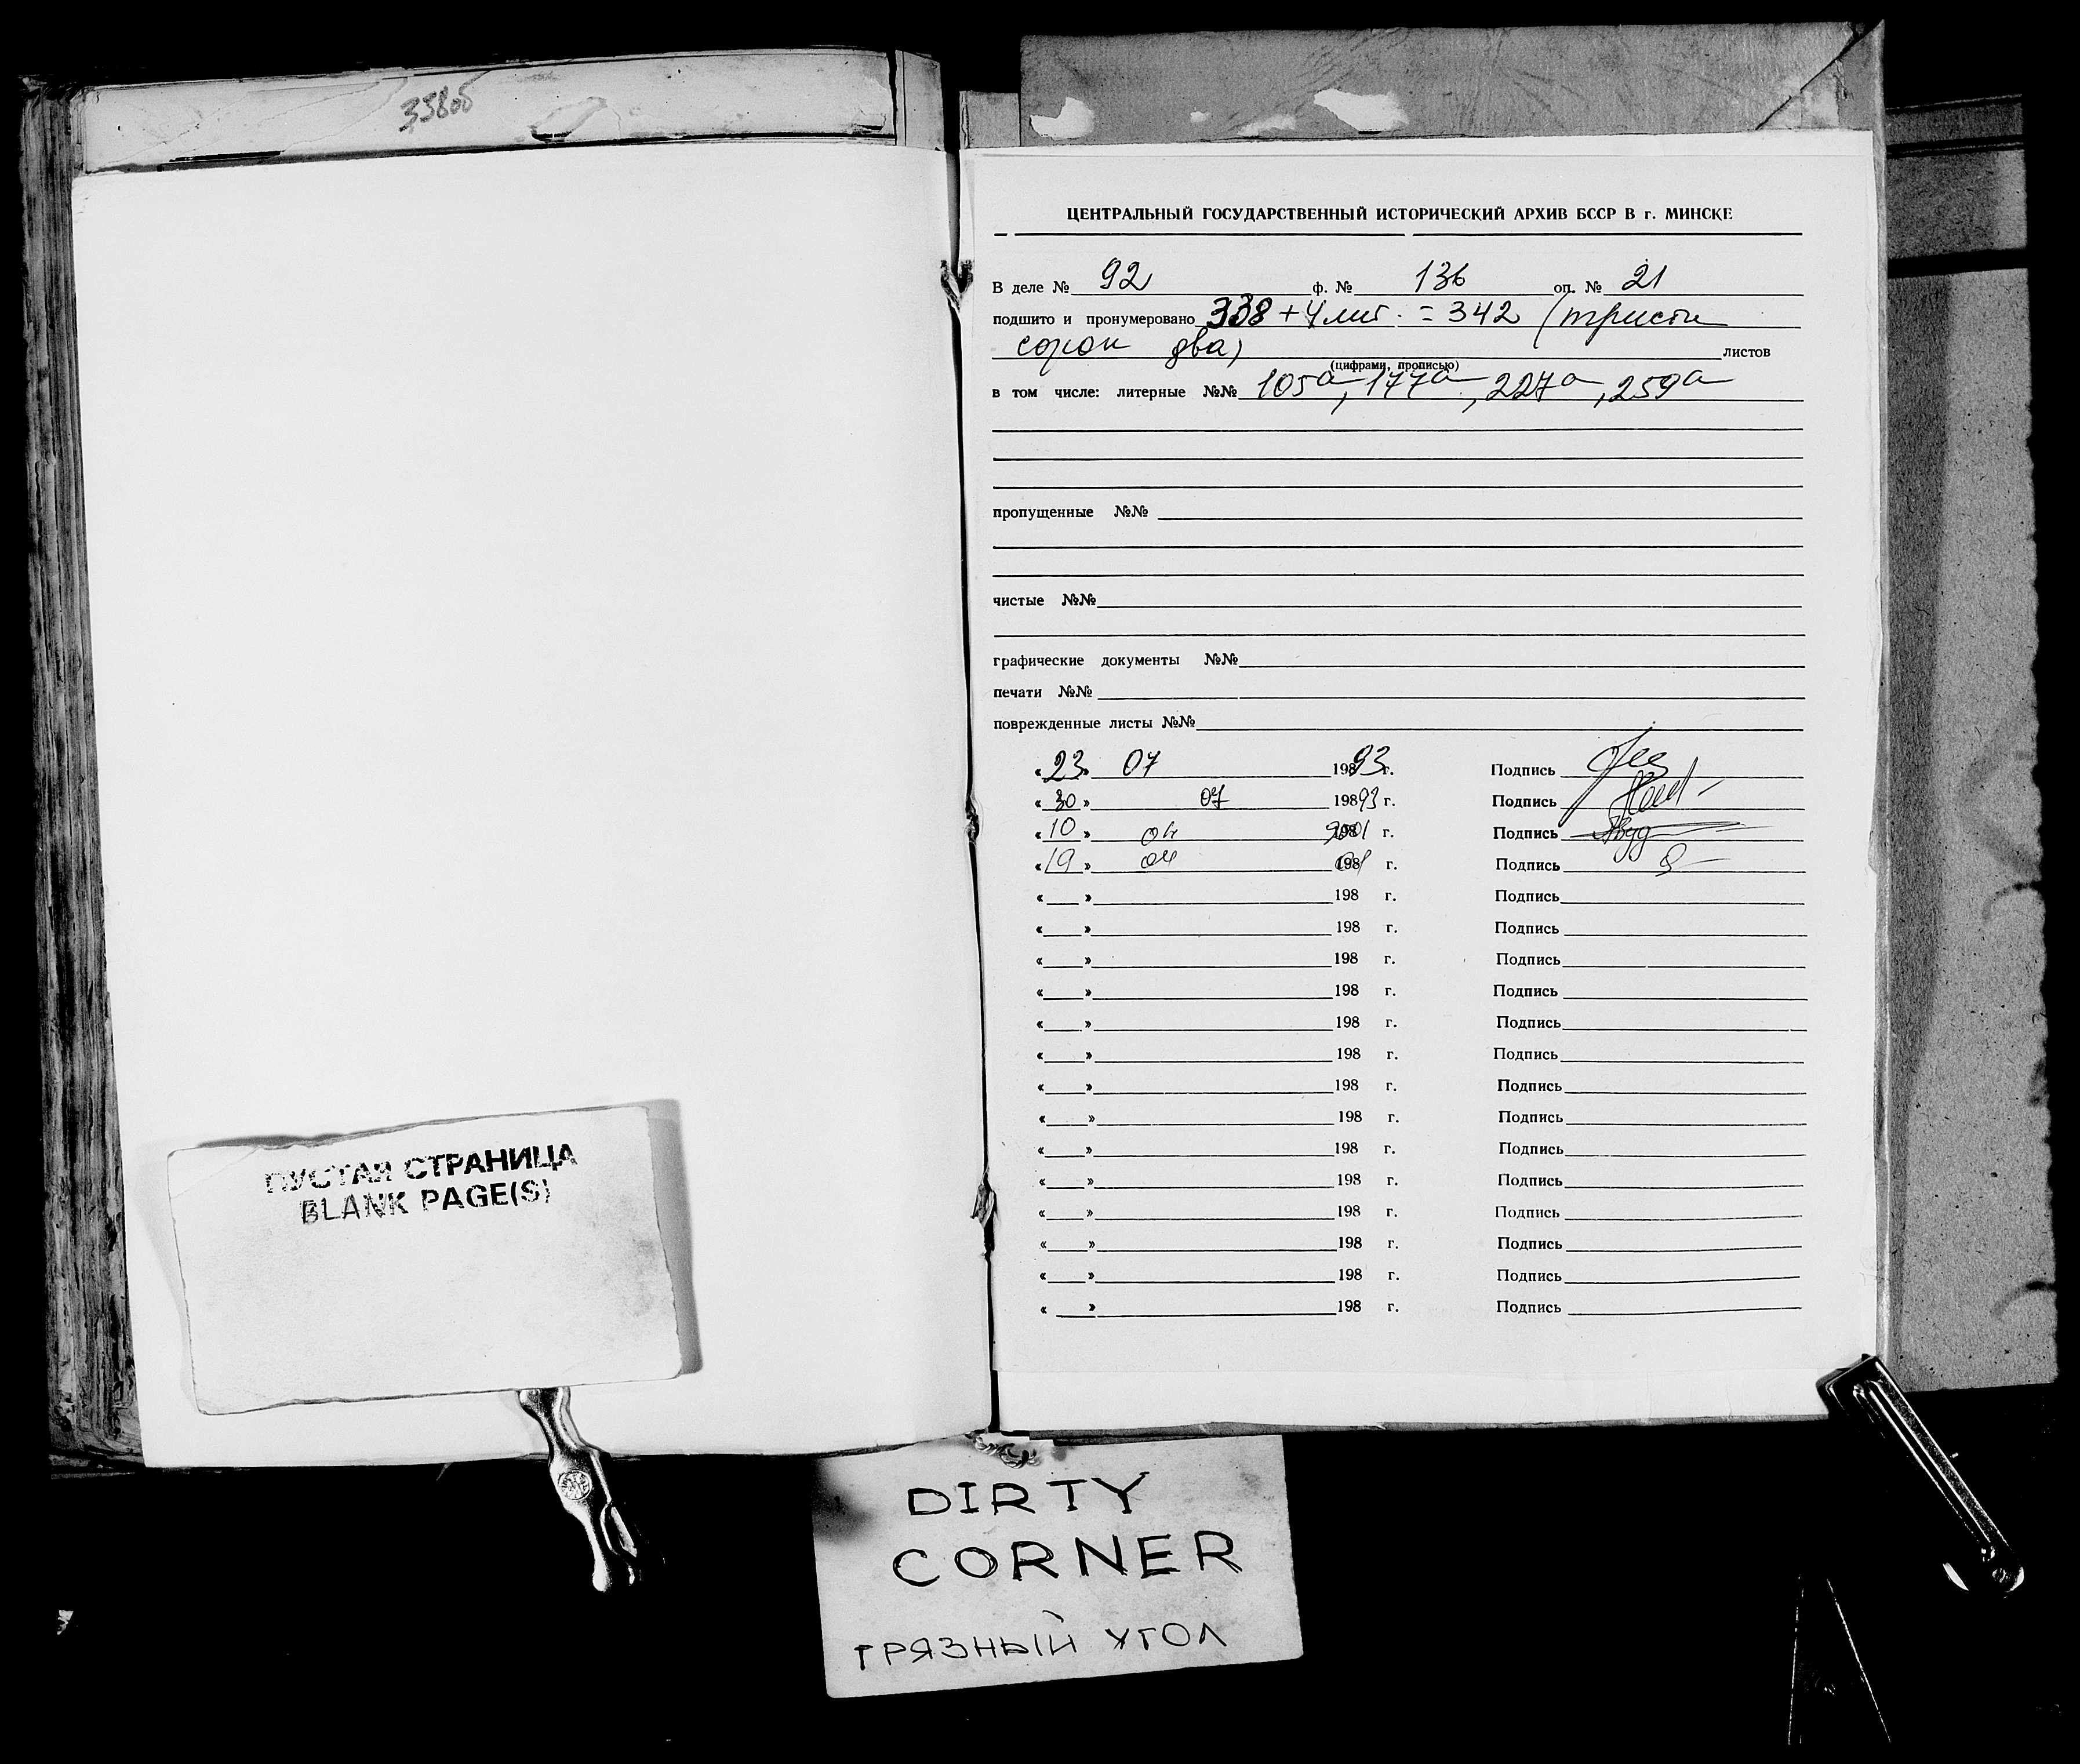 ЦЕНТРАЛЬНЫЙ ГОСУДАРСТВЕННЫЙ ИСТОРИЧЕСКИЙ АРХИВ БССР В г. МИНСКЕ
В деле № 92 ф. № 136 оп. № 21
подшито и пронумеровано 338 + 4 лит. = 342 (триста
сорок два) листов
(цифрами, прописью)
в том числе: литерные №№ 105а, 177а, 227а, 259а
пропущенные №№
чистые №№
графические документы №№
печати №№
поврежденные листы №№
«23» 07 19893 г. Подпись
«30» 07 19893 г. Подпись
«10» 04 198 г. Подпись
«19» 04 198 г. Подпись
« » 198 г. Подпись
« » 198 г. Подпись
« » 198 г. Подпись
« » 198 г. Подпись
« » 198 г. Подпись
« » 198 г. Подпись
« » 198 г. Подпись
« » 198 г. Подпись
« » 198 г. Подпись
« » 198 г. Подпись
« » 198 г. Подпись
« » 198 г. Подпись
« » 198 г. Подпись
« » 198 г. Подпись
ПУСТАЯ СТРАНИЦА
BLANK PAGE(S)
DIRTY
CORNER
ГРЯЗНЫЙ УГОЛ